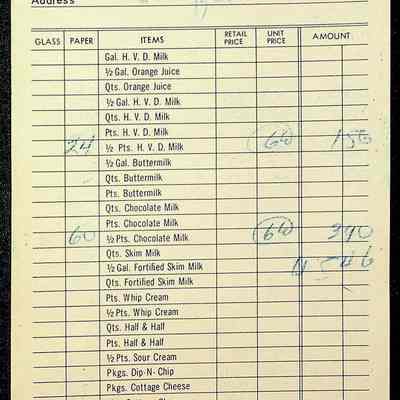 Address
GLASS PAPER ITEMS RETAIL PRICE UNIT PRICE AMOUNT
Gal. H. V. D. Milk
½ Gal. Orange Juice
Qts. Orange Juice
½ Gal. H. V. D. Milk
Qts. H. V. D. Milk
Pts. H. V. D. Milk
24 ½ Pts. H. V. D. Milk
½ Gal. Buttermilk
Qts. Buttermilk
Pts. Buttermilk
Qts. Chocolate Milk
Pts. Chocolate Milk
60 ½ Pts. Chocolate Milk 390
Qts. Skim Milk
½ Gal. Fortified Skim Milk
Qts. Fortified Skim Milk
Pts. Whip Cream
½ Pts. Whip Cream
Qts. Half & Half
Pts. Half & Half
½ Pts. Sour Cream
Pkgs. Dip-N-Chip
Pkgs. Cottage Cheese